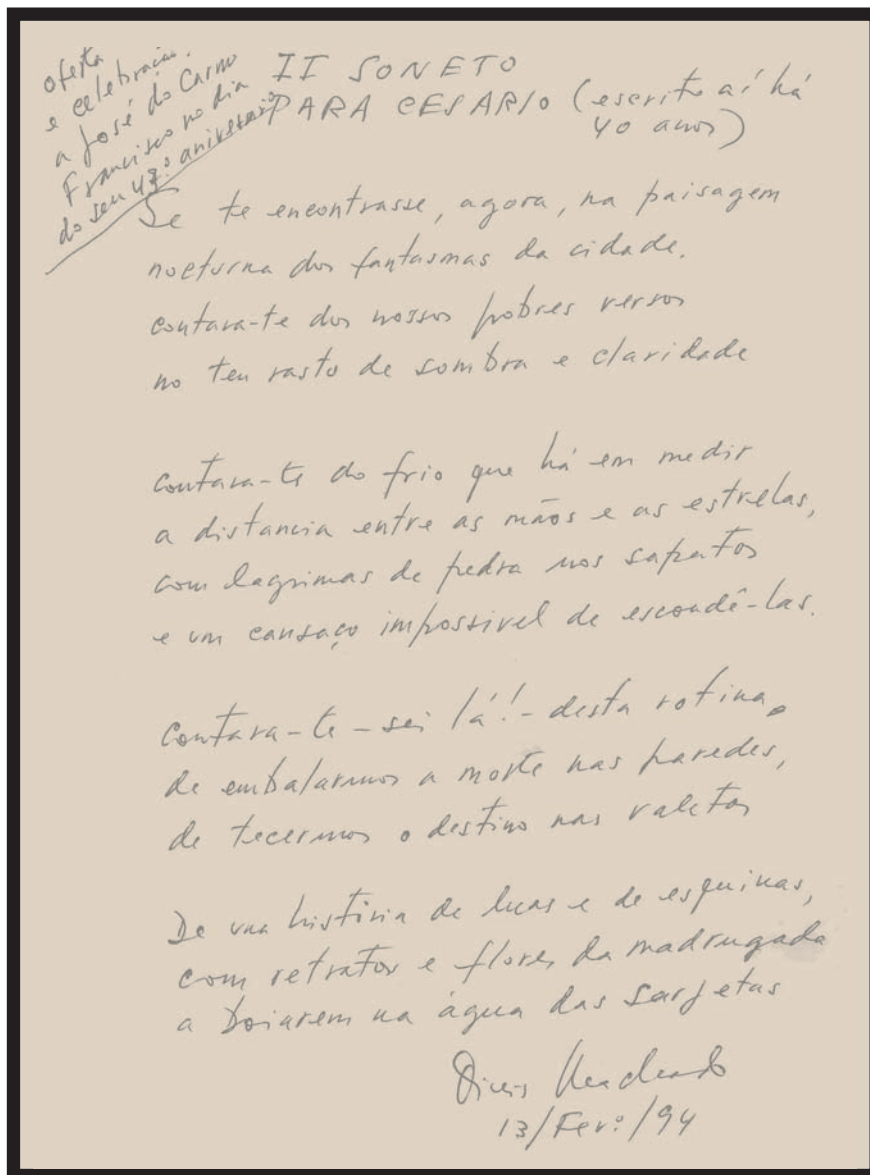 oferta
e celebração.
a José do Carmo
Francisco no dia
do seu 43º aniversário
II SONETO
PARA CESARIO (escrito aí há
40 anos)
Se te encontrasse, agora, na paisagem
nocturna dos fantasmas da cidade,
contara-te dos nossos pobres versos
no teu rasto de sombra e claridade
contara-te do frio que há em medir
a distancia entre as mãos e as estrelas,
com lagrimas de pedra nos sapatos
e um cansaço impossivel de escondê-las.
Contara-te - sei lá! - desta rotina,
de embalarmos a morte nas paredes,
de tecermos o destino nas valetas
De uma história de luas e de esquinas,
com retratos e flores da madrugada
a boiarem na água das sarjetas
Dinis Machado
13/Fevº/94